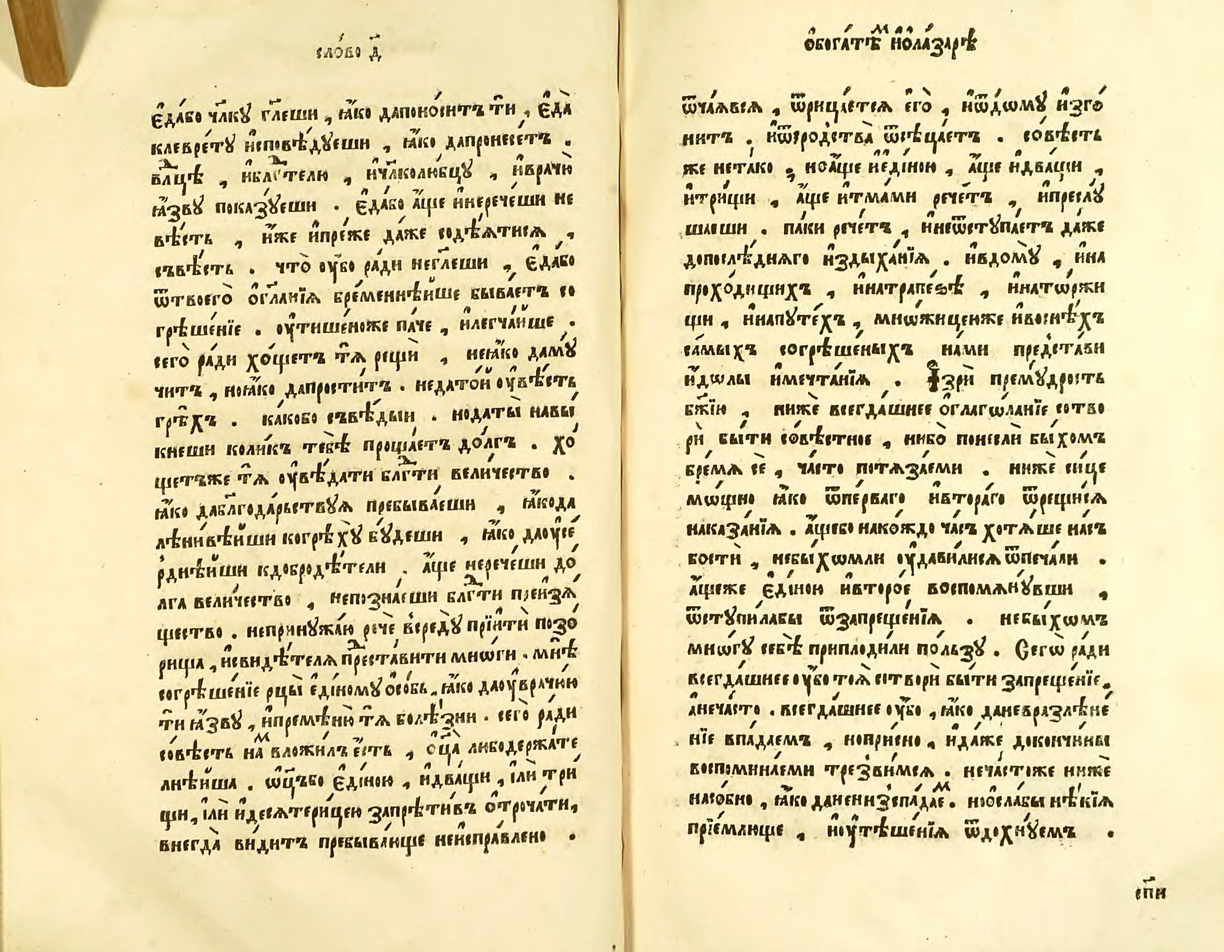 сло́во д҃
є҆да́бо чл҃кꙋ гл҃еши , ꙗ҆́ко дапоно́ситъ тѝ , є҆да̀
клевре́тꙋ и҆сповѣ́дꙋеши , ꙗ҆́ко дапронесе́тъ .
влⷣцѣ , иблⷣтелю , и҆чл҃колю́бцꙋ , и҆врачю̀
ꙗ҆́звꙋ показꙋ́еши . є҆да́бо а҆́ще и҆нерече́ши не
вѣ́сть , и҆́же и҆пре́же да́же содѣ́ѧтисѧ ,
съвѣ́сть . что̀ ᲂу҆́бо ра́ди негл҃еши , є҆да́бо
ѿтвоего̀ ѻ҆гл҃анїѧ бре́меннѣйше быва́етъ со
грѣше́нїе . ᲂу҆ти́шеноже па́че , и҆легча́йше .
сего̀ ра́ди хо́щетъ тѧ̀ рещѝ , неꙗ҆́ко дамꙋ́
читъ , ноꙗ҆́ко дапрости́тъ . недато́й ᲂу҆вѣ́сть
грѣ́хъ . ка́кобо съвѣ́дыи . нодаты̀ навы́
кнеши коли́къ тебѣ̀ проща́етъ до́лгъ . хо́
щетъже тѧ̀ ᲂу҆вѣ́дати блгⷣти вели́чество .
ꙗ҆́ко дабл҃года́рьствꙋѧ пребыва́еши , ꙗ҆́кода
лѣни́вѣйши когрѣхꙋ̀ бꙋ́деши , ꙗ҆́ко даᲂу҆се́
рднѣйши кдобродѣ́тели . а҆́ще нерече́ши до́
лга вели́чество , непозна́еши блгⷣти преизѧ́
щество . непринꙋжа́ю речѐ вереdꙋ̀ прїитѝ позо́
рища , исвидѣ́телѧ преⷣста́вити мнѡ́ги . мнѣ̀
согрѣше́нїе рцы̀ є҆ди́номꙋ ѻ҆со́бь , ꙗ҆́ко даᲂу҆врачю̀
ти ꙗ҆́звꙋ , и҆премѣню̀ тѧ̀ болѣ́зни . сего̀ ра́ди
со́вѣсть наⷨ вложи́лъ є҆́сть , ѻ҆ц҃а̀ либодержа́те
лнѣйша . ѻ҆ц҃ъбо є҆ди́ною , и҆два́щи , и҆лѝ три́
щи , и҆лѝ и҆десѧтери́цею запрѣти́въ ѻ҆троча́ти ,
внегда̀ ви́дитъ пребыва́юще неиспра́влено .
ѻ҆бога́тѣⷨ и҆ола́зарѣ
ѿча́ѧвсѧ , ѿрица́етсѧ є҆го̀ , и҆ѿдо́мꙋ и҆зго́
нитъ . и҆ѿро́дства ѿсѣца́етъ . со́вѣсть
же нета́ко , ноа҆́ще и҆еди́ною , а҆́ще и҆два́щи ,
и҆три́щи , а҆́ще и҆тма́ми рече́тъ , и҆преслꙋ́
шаеши . па́ки рече́тъ , и҆неѿстꙋпа́етъ да́же
допослѣ́днѧго и҆здыха́нїѧ . и҆вдомꙋ̀ , и҆на
проходи́щихъ , и҆натрапе́зѣ , и҆нато́ржи
щи , и҆напꙋте́хъ , мно́жиценже и҆восне́хъ
са́мыхъ согрѣше́ныхъ на́ми предста́ви
и҆́дѡлы и҆мечта́нїѧ . І҆зрѝ премꙋ́дрость
бж҃їю , нижѐ всегда́шнее ѻ҆глаго́ланїе сотво
рѝ бы́ти со́вѣстное , нибо̀ понеслѝ бы́хомъ
бре́мѧ сѐ , ча́сто потѧза́еми . нижѐ си́це
мо́щно ꙗ҆́ко ѿпе́рваго и҆втора́го ѿрещи́сѧ
наказа́нїѧ . а҆́щебо нако́ждо ча́съ хотѧ́ше насъ
бостѝ , небы́хомли ᲂу҆дави́лисѧ ѿпеча́ли .
а҆́щеже є҆ди́ною и҆второ́е воспомѧнꙋ́вши ,
ѿстꙋпи́лабы ѿзапреще́нїѧ . небы́хомъ
мно́гꙋ себѣ̀ приплоди́ли по́льзꙋ . Сего̀ ра́ди
всегда́шнее ᲂу҆́бо тоѧ̀ сотворѝ бы́ти запреще́нїе ,
а҆неча́сто . всегда́шнее ᲂу҆́бо , ꙗ҆́ко даневразлѣне́
нїе впада́емъ , ноприсно , и҆да́же докончи́ны
воспомина́еми трезви́мсѧ . неча́стоже нижѐ
насо́бно , ꙗ҆́ко данени́зспадаеⷨ . нѻ҆сла́бы нѣ́кїѧ
прїе́млюще , и҆ᲂу҆тѣше́нїѧ ѿдохнꙋ́емъ .
сп҃и